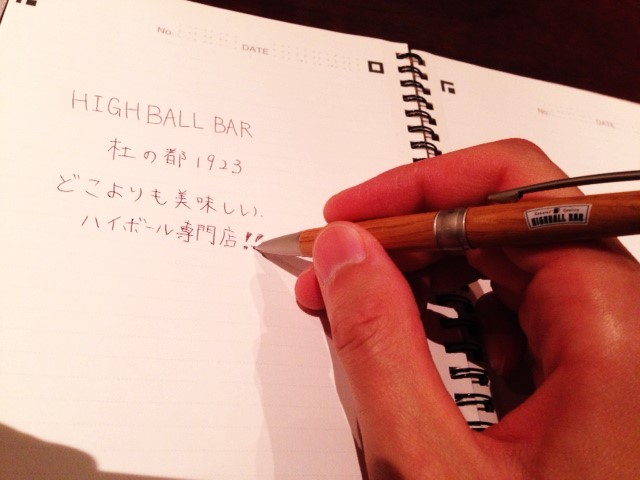 No.
DATE
HIGHBALL BAR
杜の都1923
どこよりも美味しい.
ハイボール専門店!!
HIGHBALL BAR
No.
DATE